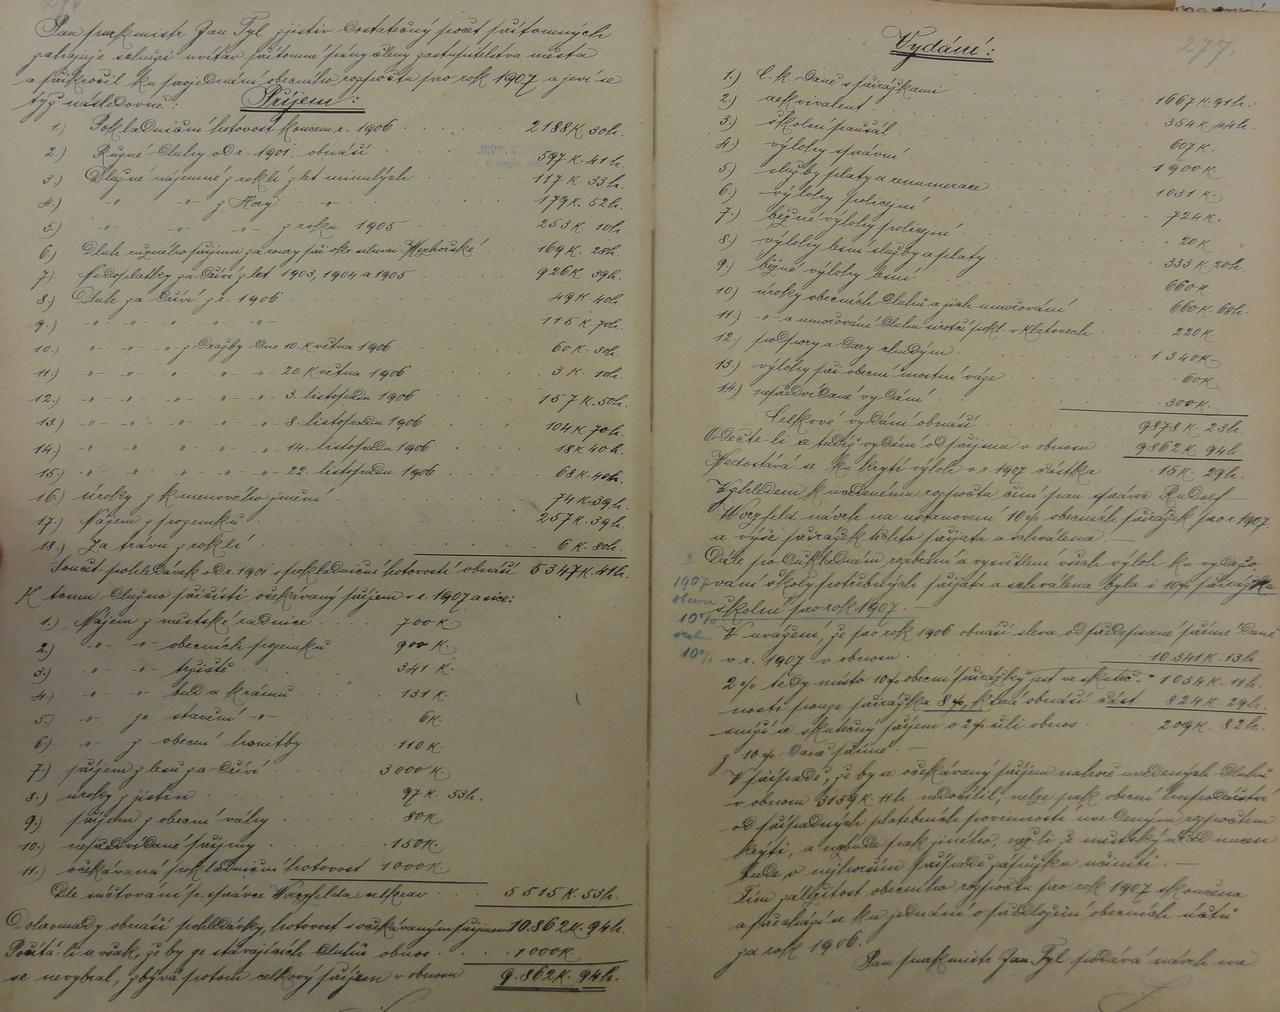 Pan purkmistr Jan Tyl zjistiv dostatečný počet přítomných
zahajuje schůzi uvítav přítomné pány členy zastupitelstva města
a přikročil ku projednání obecního rozpočtu pro rok 1907 a jeví se
týž následovně: Příjem:
1.) Pokladniční hotovost koncem r. 1906 2188 K 30h.
2.) Různé dluhy od r. 1901 obnáší 597 K 41 h.
3.) Dlužné nájemné z roklí z let minulých 117 K 33 h.
4.) " " z Hory " 179 K. 52h.
5.) " " " z roku 1905 253 K 10h.
6.) Dluh různého příjmu za svory při okr. silnici 169 K. 28h.
7.) Nedoplatky za dříví z let 1903, 1904 a 1905 926 K 39h.
8.) Dluh za dříví z r. 1906 49 K 40h.
9.) " " " " " " 115 K. 70h.
10.) " " " " z dražby dne 10. května 1906 60 K. 30h.
11.) " " " " " " " 20. května 1906 3 K. 10h.
12.) " " " " " " " 3. listopadu 1906 157 K. 50h.
13.) " " " " " " " 8. listopadu 1906 104 K 70h.
14.) " " " " " " " 14. listopadu 1906 18 K 40h.
15.) " " " " " " " 22. listopadu 1906 68 K 40h.
16.) Úroky z kmenového jmění 74 K 39h.
17.) Nájem z pozemků 257 K. 39h.
18.) Za trávu z roklí 6 K. 80h.
Součet pohledávek od r. 1901 s pokladniční hotovostí obnáší 5347 K. 41h.
K tomu dlužno přičísti očekávaný příjem v r. 1907 a sice:
1.) Nájem z městské radnice 700 K.
2.) " " obecních pozemků 900 K.
3.) " " tržiště 341 K.
4.) " " bud a krámů 131 K.
5.) " ze stavení " 6 K.
6.) " z obecní honitby 110 K.
7.) příjem z lesů za dříví 3000 K.
8.) úroky z jistin 97 K. 53h.
9.) příjem z obecní váhy 80 K
10.) nepředvídané příjmy 150 K.
11.) očekávaná pokladniční hotovost 1000 K
Dle účtování p. správce Worzfelda celkem 5515 K. 53h.
Dohromady obnáší pohledávky, hotovost s očekávaným příjmem 10.862 K. 94h.
Počítá-li se však, že by ze stávajících dluhů obnos 1000 K.
se nevybral, zbývá potom celkový příjem v obnosu 9.862 K. 94h.
277.
Vydání:
1.) C. k. daně s přirážkami 1667 K. 91h.
2.) aekvivalent 354 K. 44h.
3.) školní paušál 607 K.
4.) výlohy správní 1900 K.
5.) služby platy a remunerace 1031 K.
6.) výlohy policejní 724 K.
7.) běžné výlohy policejní 20 K
8.) výlohy lesní služby a platy 333 K 20h.
9.) běžné výlohy lesní 660 K.
10.) úroky obecních dluhů a jich umořování 660 K. 68h.
11.) " a umořování dluhu u spoř. pokl. v Klatovech 220 K
12.) podpory a dary chudým 1340 K
13.) výlohy při obecní mostní váze 60 K.
14.) nepředvídané vydání 300 K.
Celkové vydání obnáší 9878 K. 23h.
Odečte-li se tudíž vydání od příjmu v obnosu 9862 K. 94h.
Nedostává se ku krytí výloh v r. 1907 částka 15 K. 29h.
Vzhledem k uvedenému rozpočtu činí pan správce Rudolf
Worzfeld návrh na ustanovení 10% obecních přirážek pro r. 1907
a výše přirážek těchto přijata a schválena.
Dále po důkladném rozebrání a vysvětlení všech výloh ku vydržo-
vání školy potřebných přijata a schválena byla i 10% přirážka
školní pro rok 1907.
1907
obecní
10%
školní
10%
V uvážení, že pro rok 1906 obnáší sleva od předepsané přímé daně
v r. 1907 v obnosu 10341 K. 13h.
2% tedy místo 10% obecní přirážky jest ve skuteč- 1034 K. 11h.
nosti pouze přirážka 8%, která obnáší část 824 K. 29h.
sníží se skutečný příjem o 2% čili obnos 209 K. 82h.
z 10% daně přímé.
V případě, že by se očekávaný příjem nahoře uvedených dluhů
v obnosu 3159 K. 11h. nedocílil, nelze pak obecní hospodářství
od případných platebních povinností uvedeným rozpočtem
krýti, a nezbude pak jiného, nežli že městský úřad nucen
bude v nejhorším případě zápůjčku učiniti.
Tím záležitost obecního rozpočtu pro rok 1907 skončena
a přechází se ku jednání o předložení obecních účtů
za rok 1906.
Pan purkmistr Jan Tyl podává návrh na